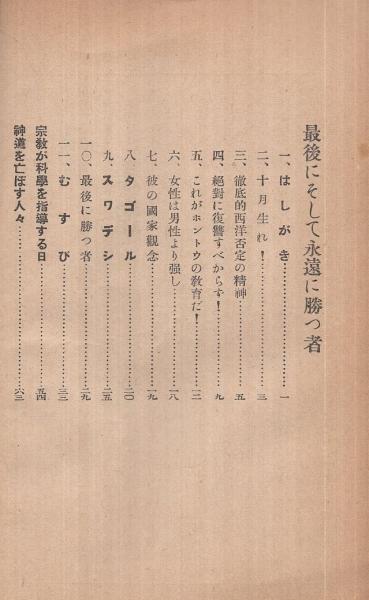 最後にそして永遠に勝つ者
一、はしがき……………………一
二、十月生れ！……………………三
三、徹底的西洋否定の精神……………………五
四、絕對に復讐すべからず！……………………九
五、これがホントウの敎育だ！……………………一二
六、女性は男性より强し……………………一八
七、彼の國家觀念……………………一九
八、タゴール……………………二〇
九、スワデシ……………………二五
一〇、最後に勝つ者……………………二九
一一、むすび……………………三三
宗敎が科學を指導する日……………………五四
神道を亡ぼす人々……………………六三